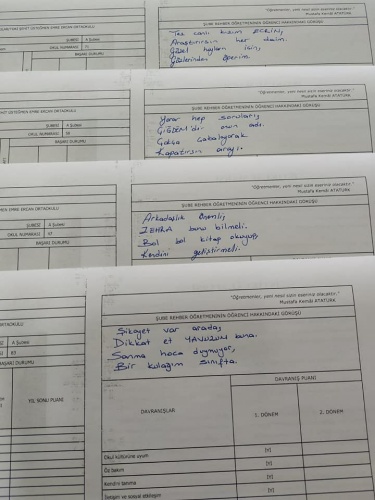 "Öğretmenler, yeni nesil sizin eseriniz olacaktır."
Mustafa Kemal ATATÜRK
ŞEHİT ÜSTEĞMEN EMRE ERCAN ORTAOKULU
ŞUBE REHBER ÖĞRETMENİNİN ÖĞRENCİ HAKKINDAKİ GÖRÜŞÜ
ŞUBESİ A Şubesi
OKUL NUMARASI
BAŞARI DURUMU
Tez canlı kızım ECRİN,
Araştırırsın her daim.
Güzel hoşlara için,
Gözlerinden öperim.
"Öğretmenler, yeni nesil sizin eseriniz olacaktır."
Mustafa Kemal ATATÜRK
EMRE ERCAN ORTAOKULU
ŞUBE REHBER ÖĞRETMENİNİN ÖĞRENCİ HAKKINDAKİ GÖRÜŞÜ
ŞUBESİ A Şubesi
OKUL NUMARASI
BAŞARI DURUMU
Yorar hep soruları,
ÇİĞDEM'dir onun adı.
Çokça çabalayarak
Kapatırsın arayı.
"Öğretmenler, yeni nesil sizin eseriniz olacaktır."
Mustafa Kemal ATATÜRK
EMRE ERCAN ORTAOKULU
ŞUBE REHBER ÖĞRETMENİNİN ÖĞRENCİ HAKKINDAKİ GÖRÜŞÜ
ŞUBESİ A Şubesi
OKUL NUMARASI 57
BAŞARI DURUMU
Arkadaşlık önemli,
ZEHRA bunu bilmeli.
Bol bol kitap okuyup
Kendini geliştirmeli.
"Öğretmenler, yeni nesil sizin eseriniz olacaktır."
Mustafa Kemal ATATÜRK
ORTAOKULU
ŞUBE REHBER ÖĞRETMENİNİN ÖĞRENCİ HAKKINDAKİ GÖRÜŞÜ
A Şubesi
83
DURUMU
YIL SONU PUANI
Şikayet var arada,
Dikkat et YAVUZUM buna.
Sanma hoca duymuyor,
Bir kulağım sınıfta.
DAVRANIŞ PUANI
DAVRANIŞLAR
1. DÖNEM
2. DÖNEM
Okul kültürüne uyum
Öz bakım
Kendini tanıma
İletişim ve sosyal etkileşim